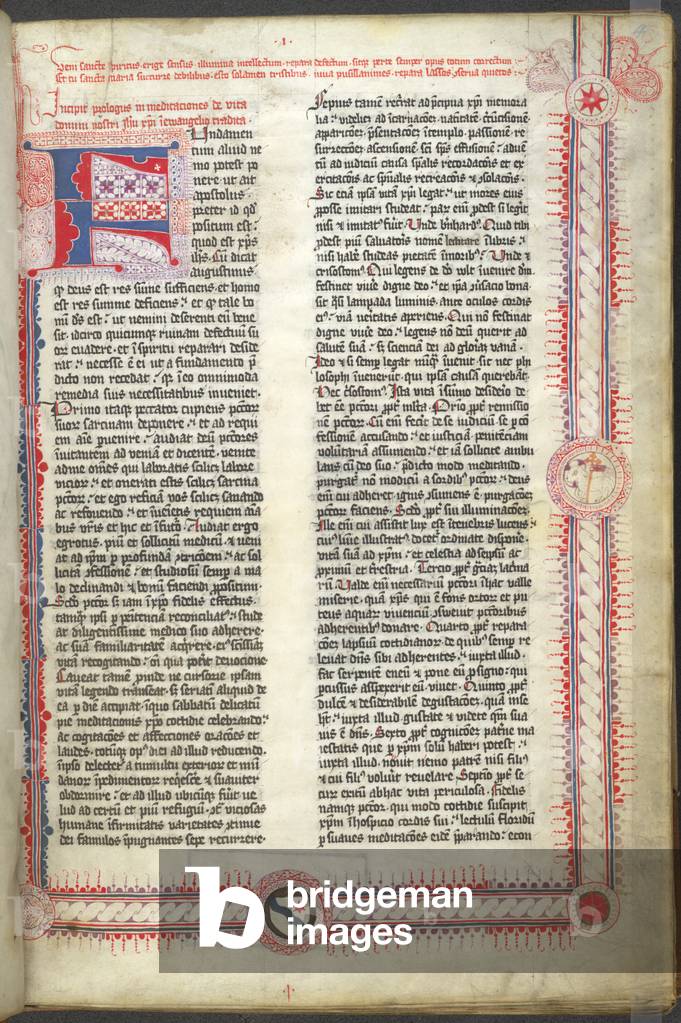 ·I·
Veni sancte spiritus. erige sensus. illumina intellectum. repara defectum. sitqe perte semper opus totum correctum
Et tu sancta maria succurre debilibus. esto solamen tristibus. iuva pusillanimes. repara lassos.
Incipit prologus in meditaciones de vita
domini nostri ihu xpi i ewangelio tradita.
Fundamen
tum aliud ne
mo potest po
nere ut ait
apostolus.
preter id qd
positum est.
quod est xps
ihs. Cu dicat
augustinus
q deus est res sume sufficiens. et homo
est res summe deficiens. et q tale bo
nu ds est. ut nemini deserenti eu bene
sit. idcirco quicumqe ruinam defectuu su
or euadere. et i spiritu reparari deside
rat. necesse e ei ut a fundamento p
dicto non recedat. qr i eo omnimoda
remedia suis necessitatibus inueniet.
Primo itaqe peccator cupiens pctor
suor sarcinam deponere. et ad requi
em aie puenire. audiat deu pctores
inuitantem ad venia et dicente. venite
adme omes qui laboratis scilicz labore
vicior. et onerati estis scilicz sarcina
pctor. et ego reficia vos scilicz sanando
ac refouendo. et iuenietis requiem aia
bus vris et hic et i futo. Audiat ergo
egrotus. piu et sollicitu medicu. et veni
at ad ipm p profunda
licita fessione. et studiosu semp a ma
lo declinandi et bonu faciendi propositum.
Scdo pctor si iam i xpo fidelis effectus.
tamqe ipsi p penitencia reconciliatus. stude
at diligentissime medico suo adherere.
ac sua familiaritate
vita recogitando. cu qua poterit deuocione.
Caueat tame pinde ne cursorie ipsam
vita legendo transeat. sz seriati aliquid de
ea p die accipiat. i quo sabbatu delicatu
pie meditacionis xpo cotidie celebrando.
ac cogitaciones et affecciones oraciones et
laudes. totuqe opus diei ad illud reducendo.
i ipso delectetur a tumultu exterior et mu
danor ipedimentor et suauiter
obdormire. et ad illud ubicumqe fuit ue
lud ad certu et piu refugiu. viciosas
humane ifirmitatis varietates
dei famulos ipugnantes sepe recurrere.
Sepius tamen recurrat ad pcipua xpi memora
lia. videlicz ad icarnacione. natiuitate. circucisione.
apparicione. psentacione i templo. passione. re
surreccione. ascensione. sci sps effusione. aduen
tu ad iudiciu causa spalis recordacois et ex
ercitacois ac spualis recreacois et solacois.
Sic ecia ipsa vita xpi legat. ut mores eius
posse imitari studeat. par eni pdest si legit
nisi et imitat fuit. Unde bnhard. Quid tibi
pdest piu saluatoris nome lectitare i libris.
nisi habe studeas pietate i moribus. Unde et
crisostomus. Qui legens de deo vult iuenire dm.
festinet viue digne deo. et ipa suersacio bona.
sit qsi lampada luminis. ante oculos cordis
ei. via veritatis aperiens. Qui no festinat
digne viue deo. et legens no deu querit ad
salute sua. sz sciencia dei ad gloria vana.
Ideo et si semp legat nuqe iuenit. sic nec phi
losophi iuenerut. qui ipsa causa querebat.
Hec crisostomus. Ista vita i sumo desiderio de
bet ee pctori ppter mlta. Primo ppter remissio
ne pctor. Cu eni fecit de se iudiciu se p co
fessione accusando. et iusticia penitencia
voluntaria assumendo. et ia sollicite ambu
lans cu deo suo. pdicto modo meditando.
purgat no modicu a sordibus pctor. deus
eni cui adheret ignis sumens e. purgacoes
pctor faciens. Scdo ppter sui illuminacoes.
Ille eni cui assistit lux est i tenebris lucens.
cuius lumie illustratus docet ordinate dispone
vita sua ad xpm. et celestia ad seipsu ac
proximu et trestria. Tercio ppter
Valde eni necessariu pctori i hac valle
miserie. qua xps qui e fons ortor et pu
teus aquar viuenciu pctoribus
adherentibus donare. Quarto ppter repara
coes lapsuu cotidianor. de quibus semp re
leuat dns sibi adherentes. iuxta illud.
Fac serpente eneu et pone eu p signo. qui
pcussus aspexerit eu viuet. Quinto ppter
dulce et desiderabile degustacoes. qua i ipse
iuxta illud gustate et videte qm sua
uis e dns. Sexto ppter cognicoes paterne ma
iestatis que p xpm solu haberi potest.
iuxta illud. nouit nemo patre nisi filius
et cui filius voluit reuelare. Septimo ppter se
cur exitu abhac vita periculosa. Fidelis
namqe pctor. qui modo cotidie suscipit
xpm i hospicio cordis sui. lectulu floridu
p suaues meditacoes eide pparando. econ
bridgeman
images